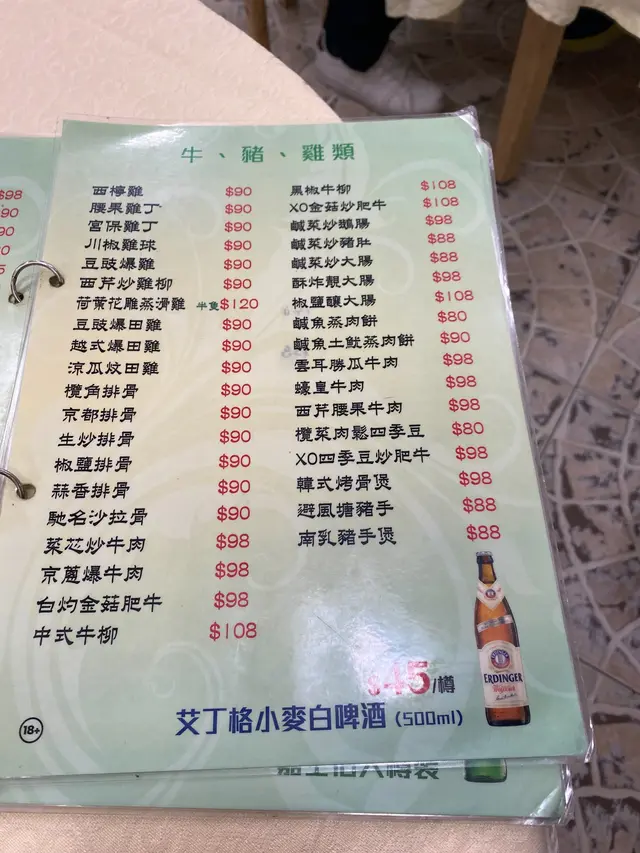 牛、豬、雞類
西檸雞 $90
腰果雞丁 $90
宮保雞丁 $90
川椒雞球 $90
豆豉爆雞 $90
西芹炒雞柳 $90
荷葉花雕蒸滑雞 半隻$120
豆豉爆田雞 $90
越式爆田雞 $90
涼瓜炆田雞 $90
欖角排骨 $90
京都排骨 $90
生炒排骨 $90
椒鹽排骨 $90
蒜香排骨 $90
馳名沙拉骨 $90
菜芯炒牛肉 $98
京蔥爆牛肉 $98
白灼金菇肥牛 $98
中式牛柳 $108
黑椒牛柳 $108
XO金菇炒肥牛 $108
鹹菜炒鵝腸 $98
鹹菜炒豬肚 $88
鹹菜炒大腸 $88
酥炸靚大腸 $98
椒鹽釀大腸 $108
鹹魚蒸肉餅 $80
鹹魚土魷蒸肉餅 $90
雲耳勝瓜牛肉 $98
蠔皇牛肉 $98
西芹腰果牛肉 $98
欖菜肉鬆四季豆 $80
XO四季豆炒肥牛 $98
韓式烤骨煲 $98
避風塘豬手 $88
南乳豬手煲 $88
ERDINGER
$45/樽
艾丁格小麥白啤酒 (500ml)
18+
$98